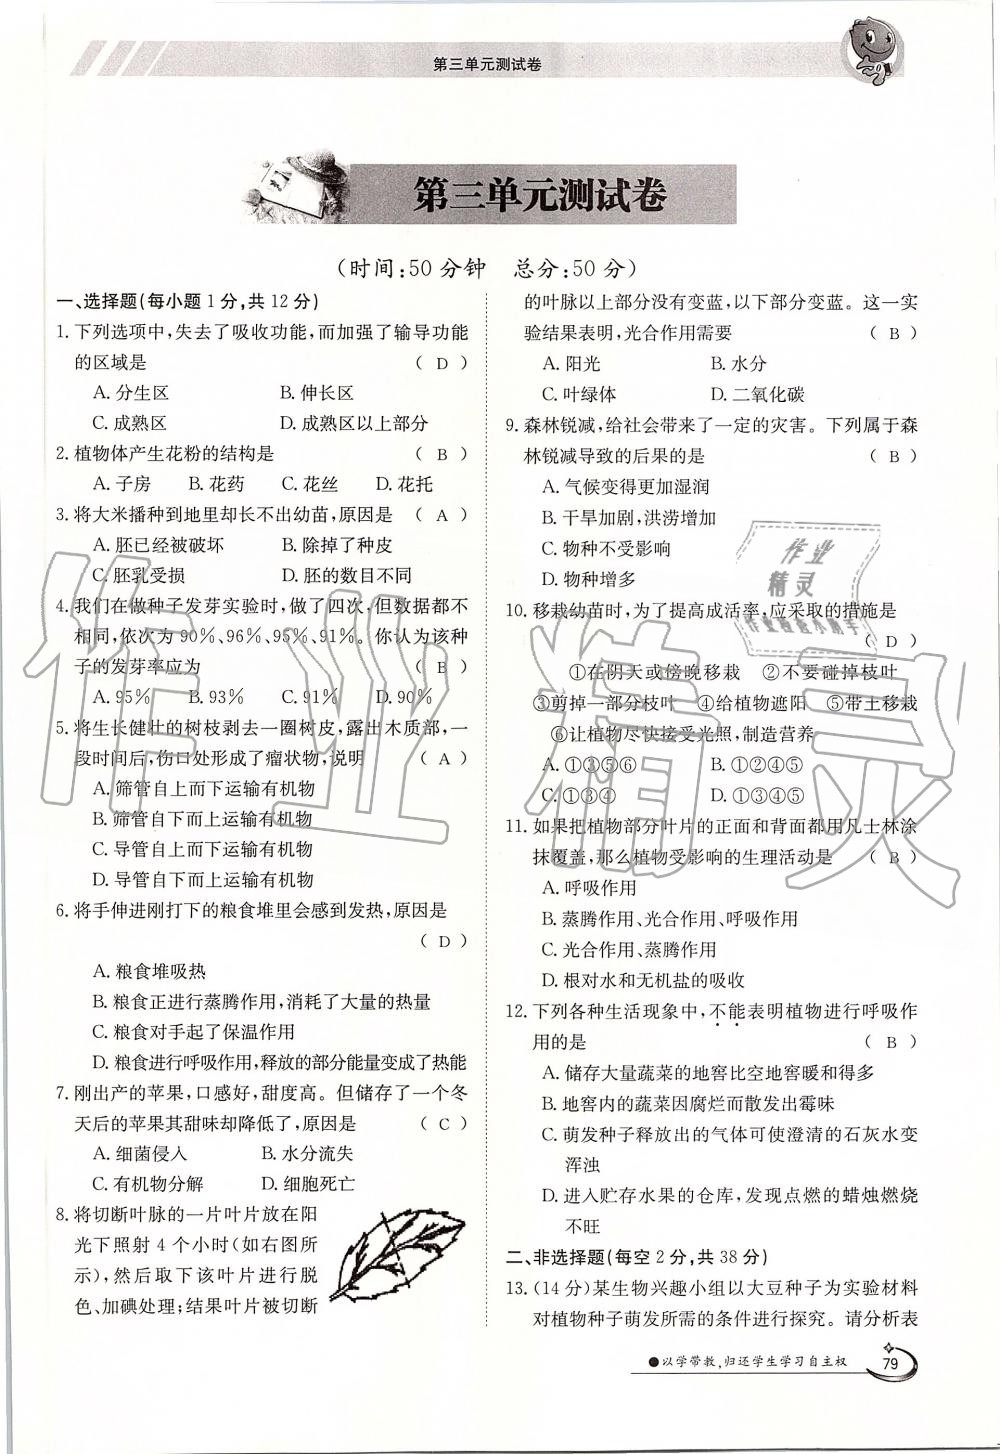 第三单元测试卷
第三单元测试卷
(时间:50分钟　总分:50分)
一、选择题(每小题1分,共12分)
1. 下列选项中,失去了吸收功能,而加强了输导功能
的区域是 ( D )
A. 分生区 B. 伸长区
C. 成熟区 D. 成熟区以上部分
2. 植物体产生花粉的结构是 ( B )
A. 子房 B. 花药 C. 花丝 D. 花托
3. 将大米播种到地里却长不出幼苗,原因是 ( A )
A. 胚已经被破坏 B. 除掉了种皮
C. 胚乳受损 D. 胚的数目不同
4. 我们在做种子发芽实验时,做了四次,但数据都不
相同,依次为90%、96%、95%、91%。你认为该种
子的发芽率应为 ( B )
A. 95% B. 93% C. 91% D. 90%
5. 将生长健壮的树枝剥去一圈树皮,露出木质部,一
段时间后,伤口处形成了瘤状物,说明 ( A )
A. 筛管自上而下运输有机物
B. 筛管自下而上运输有机物
C. 导管自上而下运输有机物
D. 导管自下而上运输有机物
6. 将手伸进刚打下的粮食堆里会感到发热,原因是
( D )
A. 粮食堆吸热
B. 粮食正进行蒸腾作用,消耗了大量的热量
C. 粮食对手起了保温作用
D. 粮食进行呼吸作用,释放的部分能量变成了热能
7. 刚出产的苹果,口感好,甜度高。但储存了一个冬
天后的苹果其甜味却降低了,原因是 ( C )
A. 细菌侵入 B. 水分流失
C. 有机物分解 D. 细胞死亡
8. 将切断叶脉的一片叶片放在阳
光下照射4个小时(如右图所
示),然后取下该叶片进行脱
色、加碘处理;结果叶片被切断
的叶脉以上部分没有变蓝,以下部分变蓝。这一实
验结果表明,光合作用需要 ( B )
A. 阳光 B. 水分
C. 叶绿体 D. 二氧化碳
9. 森林锐减,给社会带来了一定的灾害。下列属于森
林锐减导致的后果的是 ( B )
A. 气候变得更加湿润
B. 干旱加剧,洪涝增加
C. 物种不受影响
D. 物种增多
10. 移栽幼苗时,为了提高成活率,应采取的措施是
( D )
①在阴天或傍晚移栽 ②不要碰掉枝叶
③剪掉一部分枝叶 ④给植物遮阳 ⑤带土移栽
⑥让植物尽快接受光照,制造营养
A. ①③⑤⑥ B. ①②④⑤
C. ①③④ D. ①③④⑤
11. 如果把植物部分叶片的正面和背面都用凡士林涂
抹覆盖,那么植物受影响的生理活动是 ( B )
A. 呼吸作用
B. 蒸腾作用、光合作用、呼吸作用
C. 光合作用、蒸腾作用
D. 根对水和无机盐的吸收
12. 下列各种生活现象中,不能表明植物进行呼吸作
用的是 ( B )
A. 储存大量蔬菜的地窖比空地窖暖和得多
B. 地窖内的蔬菜因腐烂而散发出霉味
C. 萌发种子释放出的气体可使澄清的石灰水变
浑浊
D. 进入贮存水果的仓库,发现点燃的蜡烛燃烧
不旺
二、非选择题(每空2分,共38分)
13. (14分)某生物兴趣小组以大豆种子为实验材料
对植物种子萌发所需的条件进行探究。请分析表
●以学带教,归还学生学习自主权
79
作业精灵
作业
精灵
作业检查小助手